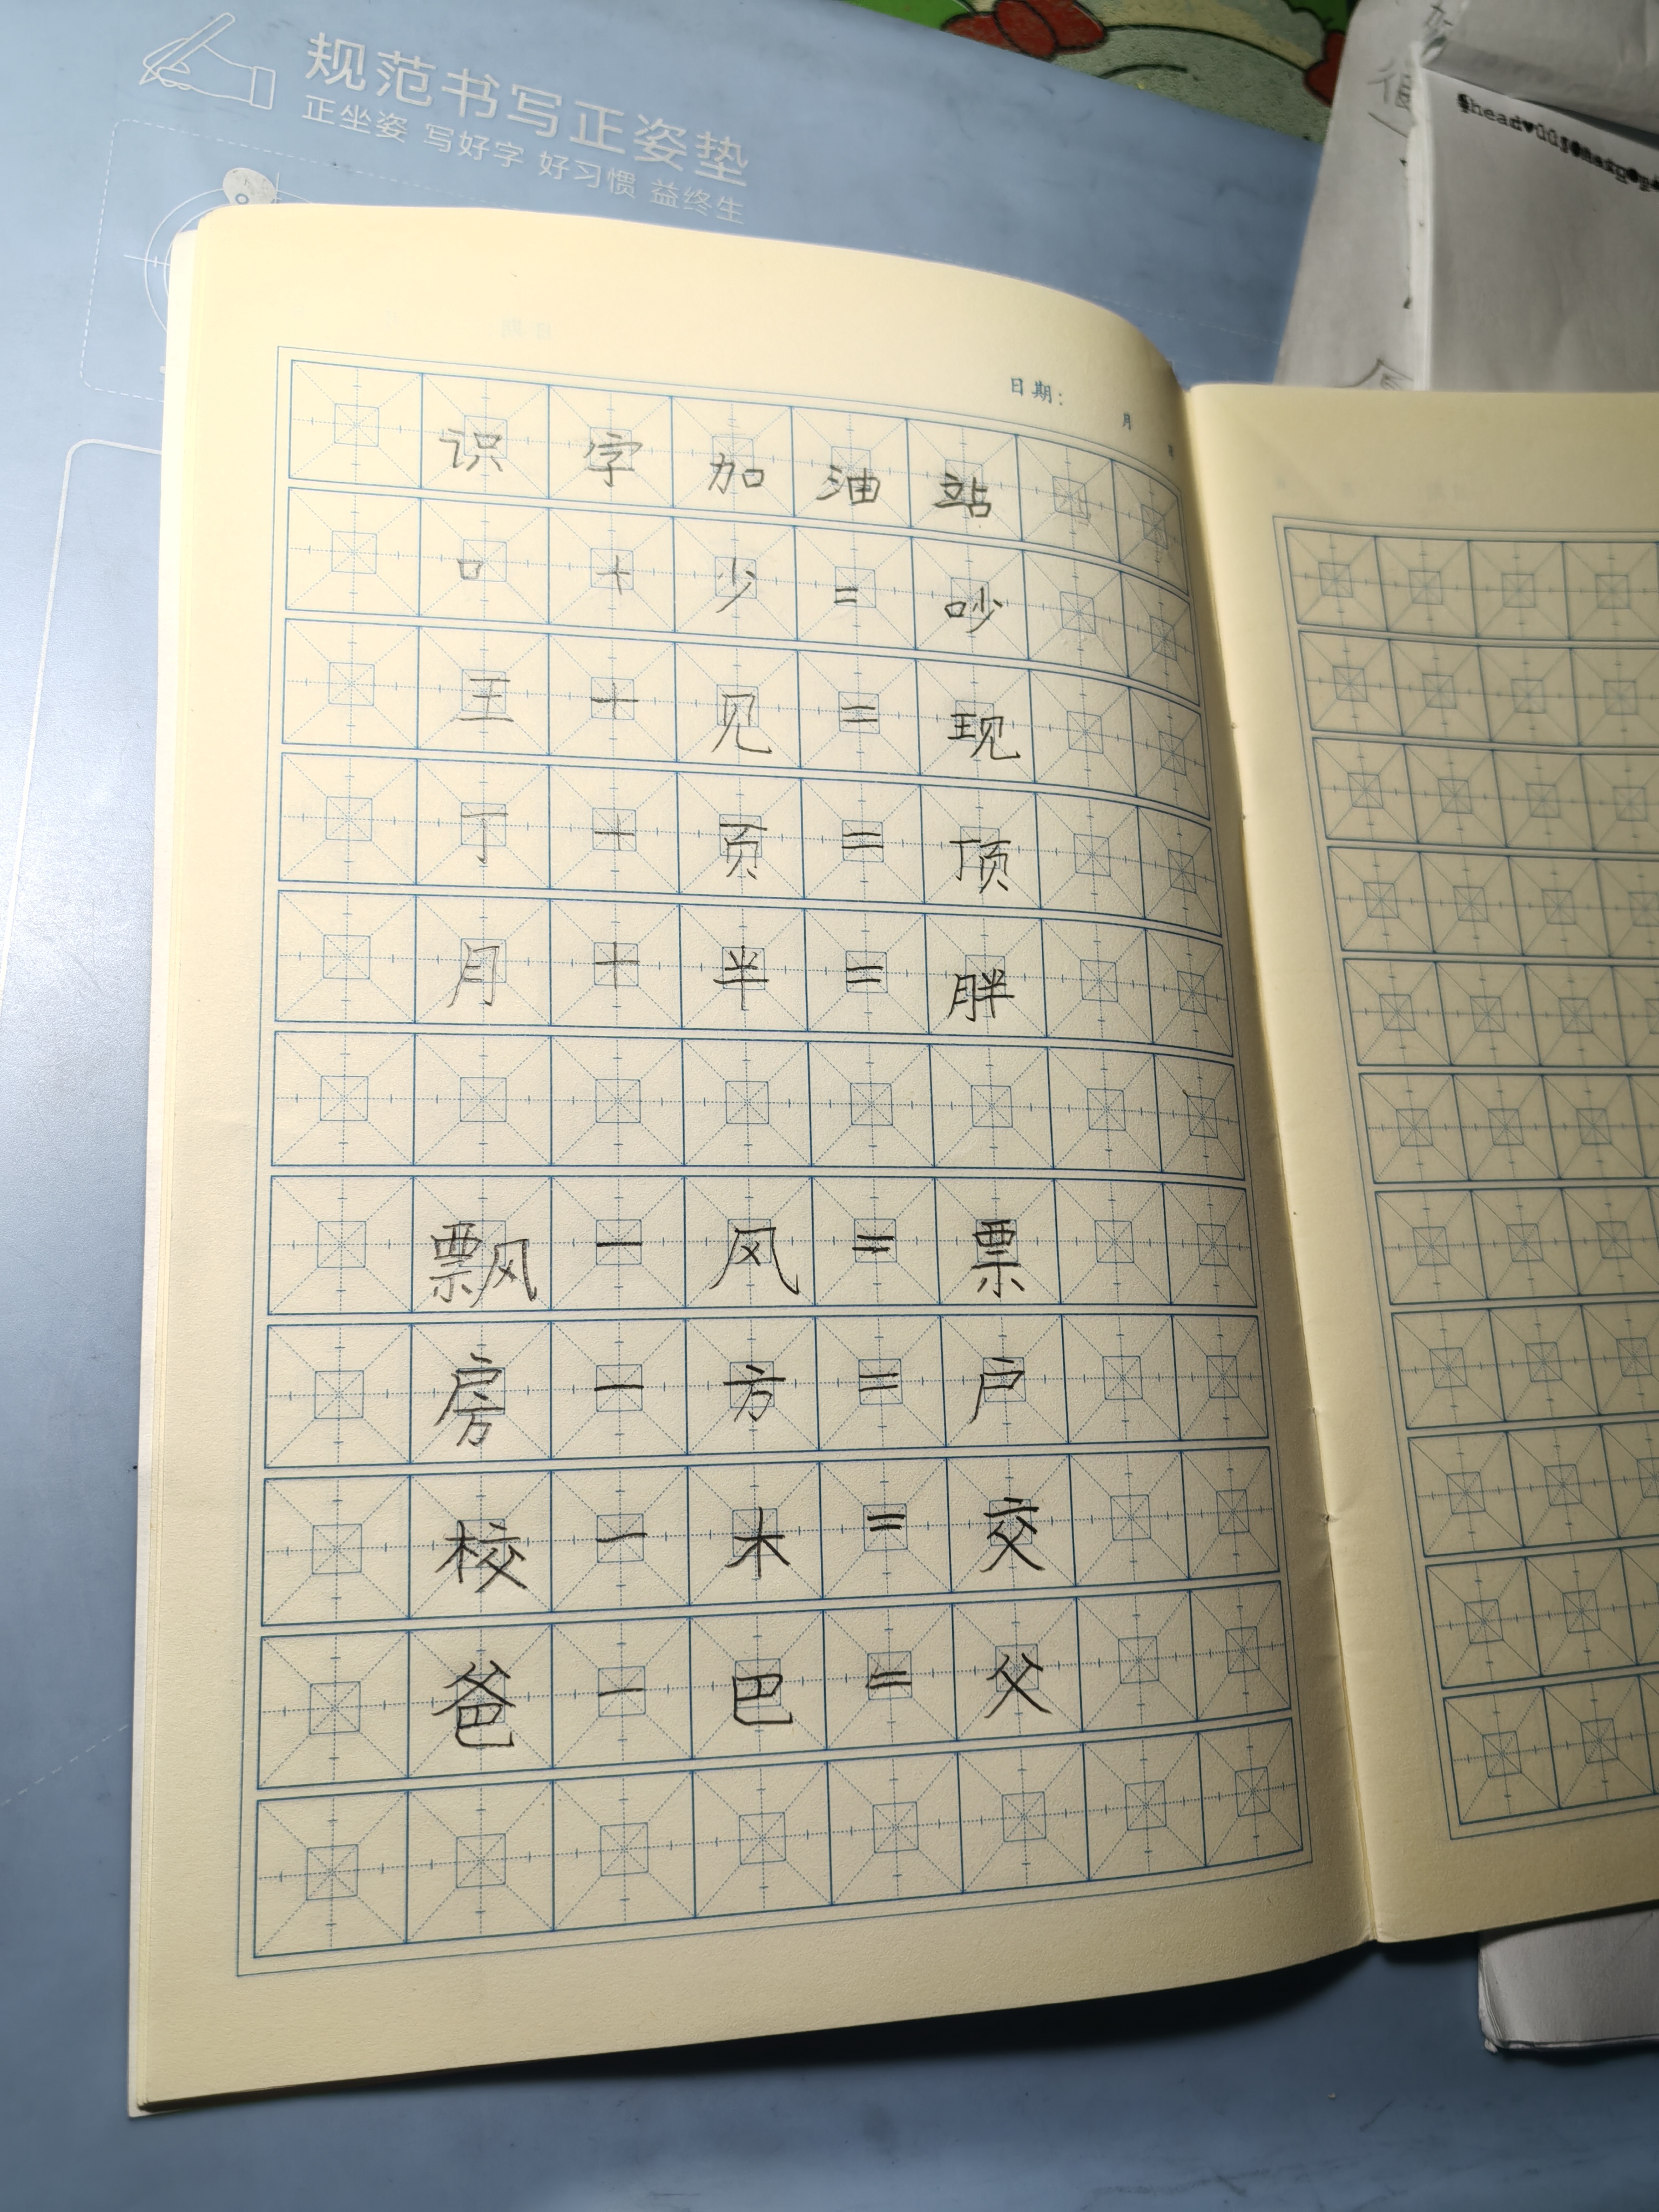 规范书写正姿垫
正坐姿 写好字 好习惯 益终生
日期: 月 日
识字加油站
口+少=吵
王+见=现
丁+页=顶
月+半=胖
飘-风=票
房-方=户
校-木=交
爸-巴=父